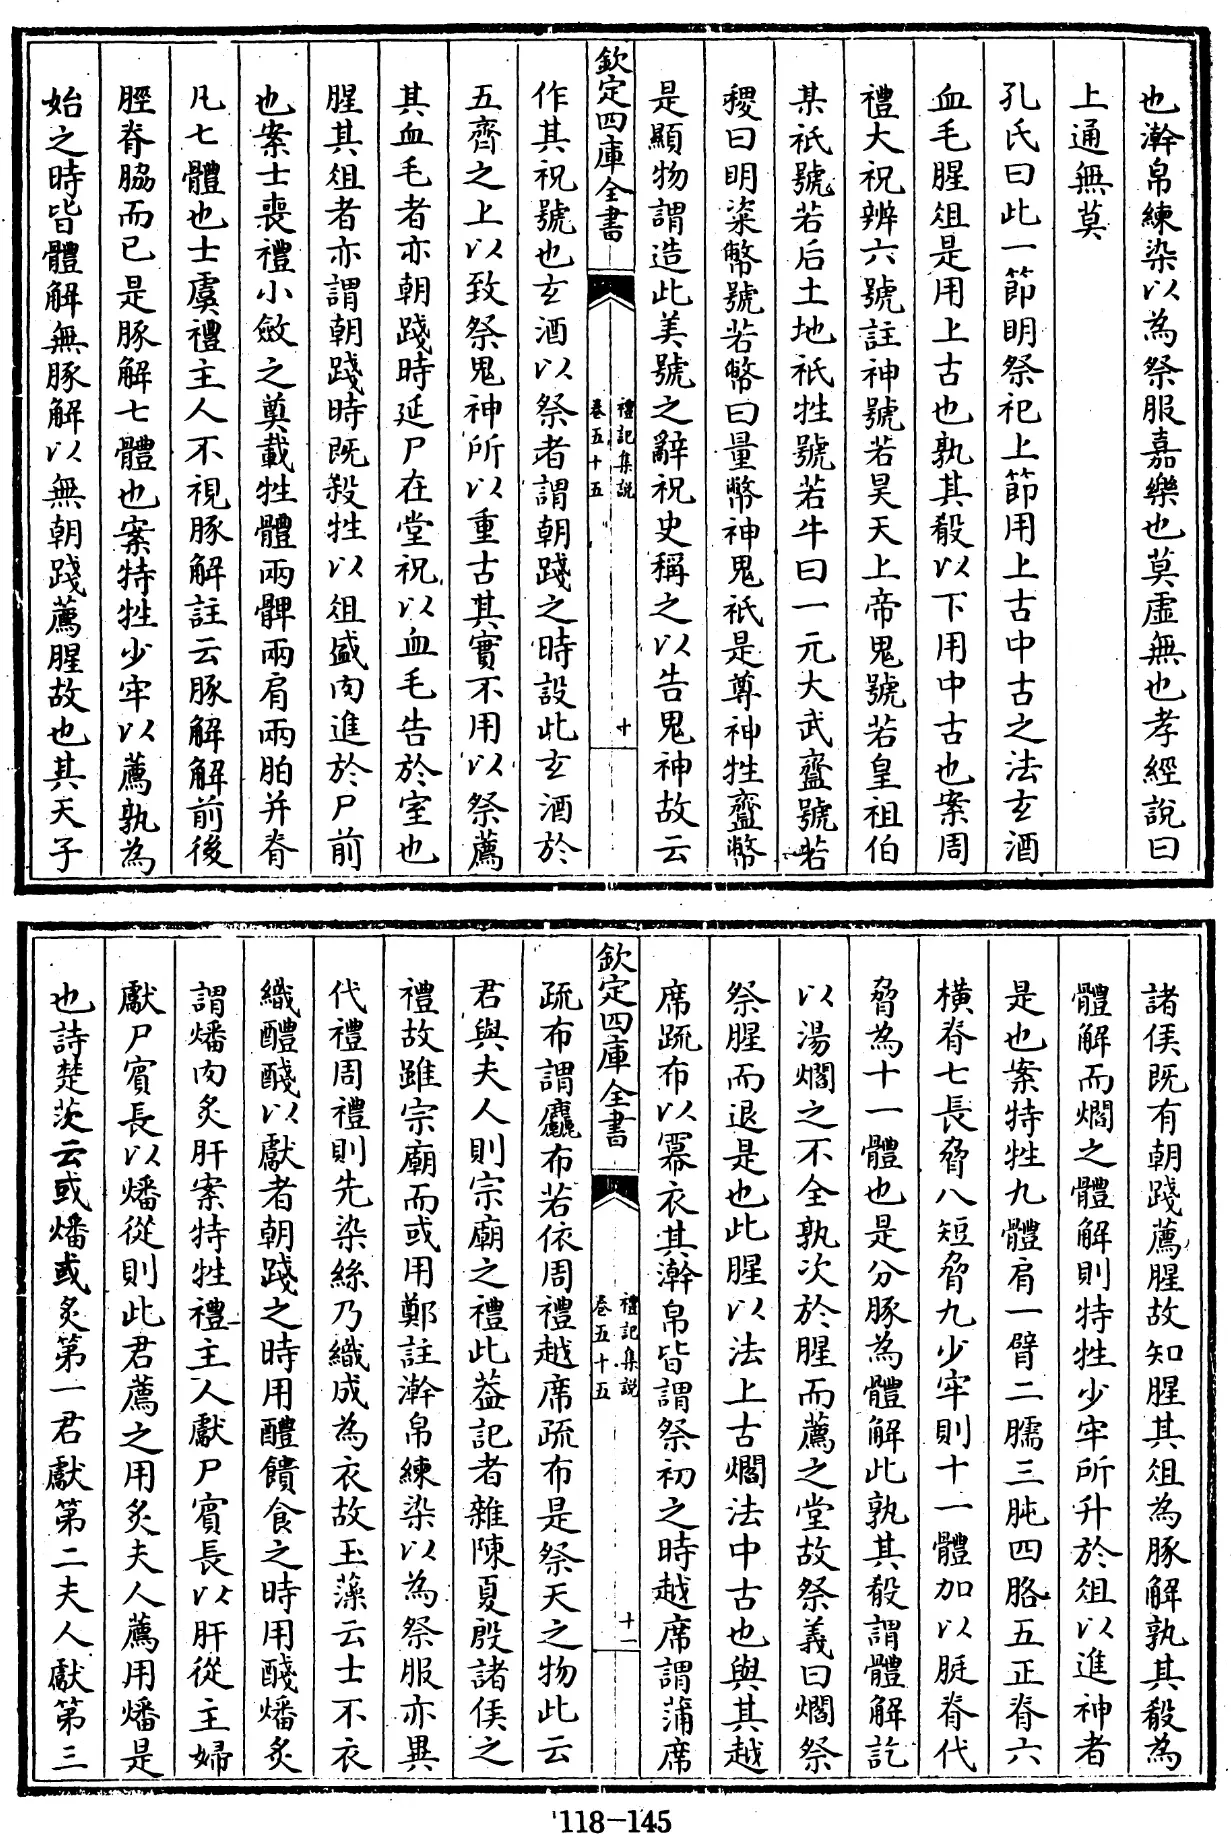 也澣帛練染以為祭服嘉樂也莫虛無也孝經說曰
上通無莫
孔氏曰此一節明祭祀上節用上古中古之法玄酒
血毛腥俎是用上古也孰其殽以下用中古也案周
禮大祝辨六號註神號若昊天上帝鬼號若皇祖伯
某祇號若后土地祇牲號若牛曰一元大武齍號若
稷曰明粢幣號若幣曰量幣神鬼祇是尊神牲齍幣
是顯物謂造此美號之辭祝史稱之以告鬼神故云
欽定四庫全書
禮記集說
卷五十五
十
作其祝號也玄酒以祭者謂朝踐之時設此玄酒於
五齊之上以致祭鬼神所以重古其實不用以祭薦
其血毛者亦朝踐時延尸在堂祝以血毛告於室也
腥其俎者亦謂朝踐時既殺牲以俎盛肉進於尸前
也案士喪禮小斂之奠載牲體兩髀兩肩兩胉并脊
凡七體也士虞禮主人不視豚解註云豚解解前後
脛脊脇而已是豚解七體也案特牲少牢以薦孰為
始之時皆體解無豚解以無朝踐薦腥故也其天子
諸侯既有朝踐薦腥故知腥其俎為豚解孰其殽為
體解而爓之體解則特牲少牢所升於俎以進神者
是也案特牲九體肩一臂二臑三肫四胳五正脊六
橫脊七長脅八短脅九少牢則十一體加以脡脊代
脅為十一體也是分豚為體解此孰其殽謂體解訖
以湯爓之不全孰次於腥而薦之堂故祭義曰爓祭
祭腥而退是也此腥以法上古爓法中古也與其越
席疏布以冪衣其澣帛皆謂祭初之時越席謂蒲席
欽定四庫全書
禮記集說
卷五十五
十一
疏布謂麤布若依周禮越席疏布是祭天之物此云
君與夫人則宗廟之禮此葢記者雜陳夏殷諸侯之
禮故雖宗廟而或用鄭註澣帛練染以為祭服亦異
代禮周禮則先染絲乃織成為衣故玉藻云士不衣
織醴醆以獻者朝踐之時用醴饋食之時用醆燔炙
謂燔肉炙肝案特牲禮主人獻尸賓長以肝從主婦
獻尸賓長以燔從則此君薦之用炙夫人薦用燔是
也詩楚茨云或燔或炙第一君獻第二夫人獻第三
118-145